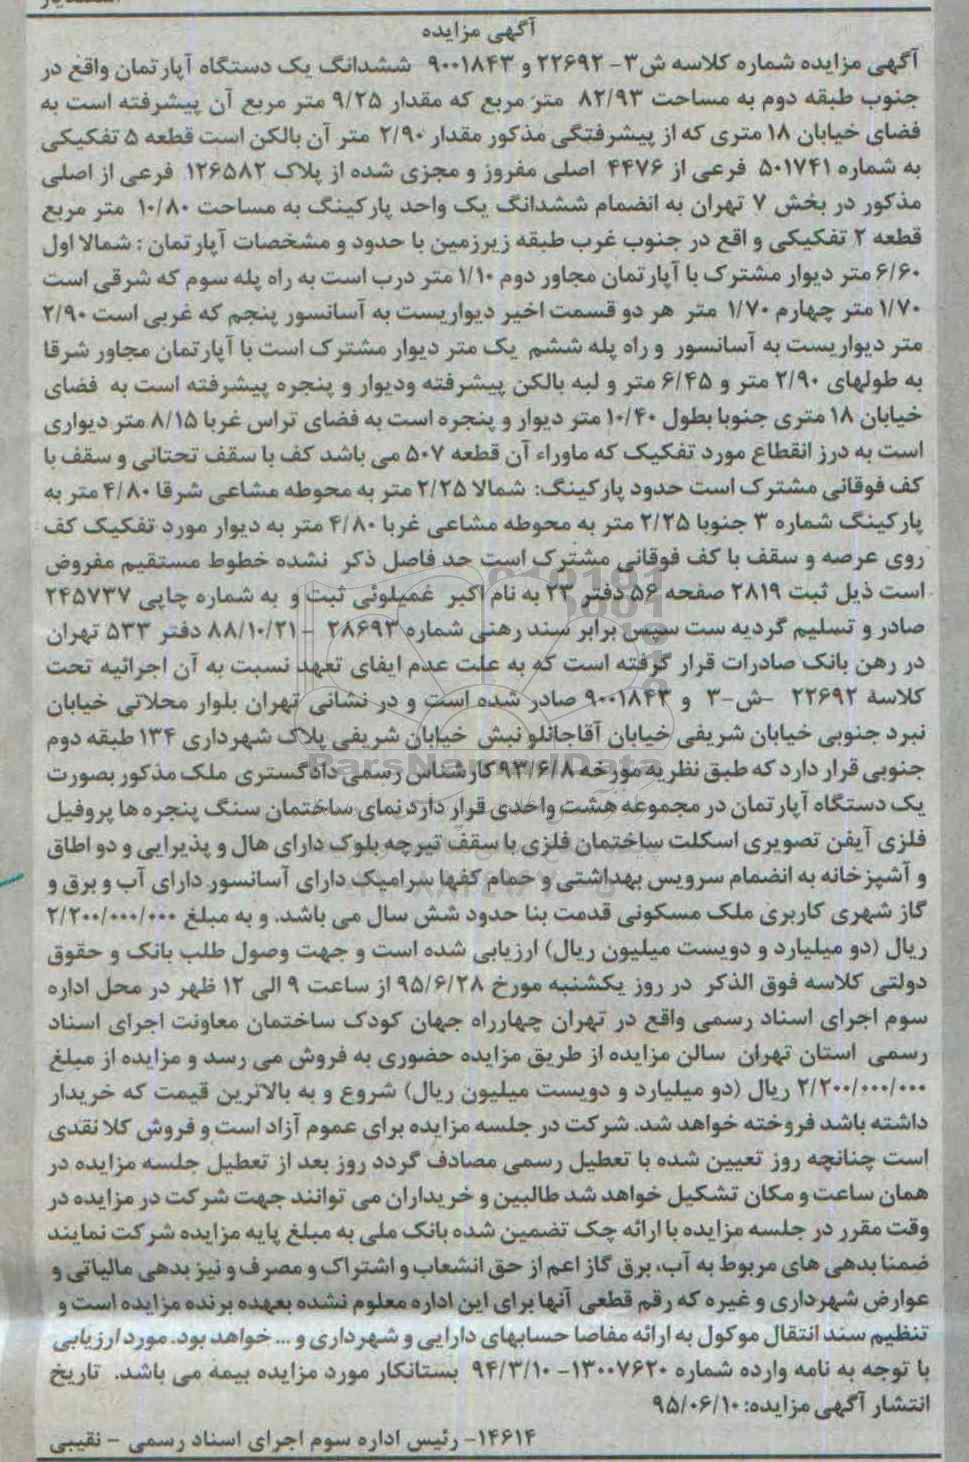 آگهی مزایده
آگهی مزایده شماره کلاسه ش۳- ۲۲۶۹۲ و ۹۰۰۱۸۴۳ ششدانگ یک دستگاه آپارتمان واقع در
جنوب طبقه دوم به مساحت ۸۲/۹۳ متر مربع که مقدار ۹/۲۵ متر مربع آن پیشرفته است به
فضای خیابان ۱۸ متری که از پیشرفتگی مذکور مقدار ۲/۹۰ متر آن بالکن است قطعه ۵ تفکیکی
به شماره ۵۰۱۷۴۱ فرعی از ۴۴۷۶ اصلی مفروز و مجزی شده از پلاک ۱۲۶۵۸۲ فرعی از اصلی
مذکور در بخش ۷ تهران به انضمام ششدانگ یک واحد پارکینگ به مساحت ۱۰/۸۰ متر مربع
قطعه ۲ تفکیکی و اقع در جنوب غرب طبقه زیرزمین با حدود و مشخصات آپارتمان : شمالا اول
۶/۶۰ متر دیوار مشترک با آپارتمان مجاور دوم ۱/۱۰ متر درب است به راه پله سوم که شرقی است
۱/۷۰ متر چهارم ۱/۷۰ متر هر دو قسمت اخیر دیواریست به آسانسور پنجم که غربی است ۲/۹۰
متر دیواریست به آسانسور و راه پله ششم یک متر دیوار مشترک است با آپارتمان مجاور شرقا
به طولهای ۲/۹۰ متر و ۶/۴۵ متر و لبه بالکن پیشرفته ودیوار و پنجره پیشرفته است به فضای
خیابان ۱۸ متری جنوبا بطول ۱۰/۴۰ متر دیوار و پنجره است به فضای تراس غربا ۸/۱۵ متر دیواری
است به درز انقطاع مورد تفکیک که ماوراء آن قطعه ۵۰۷ می باشد کف با سقف تحتانی و سقف با
کف فوقانی مشترک است حدود پارکینگ: شمالا ۲/۲۵ متر به محوطه مشاعی شرقا ۴/۸۰ متر به
پارکینگ شماره ۳ جنوبا ۲/۲۵ متر به محوطه مشاعی غربا ۴/۸۰ متر به دیوار مورد تفکیک کف
روی عرصه و سقف با کف فوقانی مشترک است حد فاصل ذکر نشده خطوط مستقیم مفروض
است ذیل ثبت ۲۸۱۹ صفحه ۵۶ دفتر ۲۳ به نام اکبر غمیلوئی ثبت و به شماره چاپی ۲۴۵۷۳۷
صادر و تسلیم گردیه ست سپس برابر سند رهنی شماره ۲۸۶۹۳ - ۸۸/۱۰/۲۱ دفتر ۵۳۳ تهران
در رهن بانک صادرات قرار گرفته است که به علت عدم ایفای تعهد نسبت به آن اجرائیه تحت
کلاسة ۲۲۶۹۲ -ش-۳ و ۹۰۰۱۸۴۳ صادر شده است و در نشانی تهران بلوار محلاتی خیابان
نبرد جنوبی خیابان شریفی خیابان آقاجانلو نبش خیابان شریفی پلاک شهرداری ۱۳۴ طبقه دوم
جنوبی قرار دارد که طبق نظریه مورخه ۹۳/۶/۸ کارشناس رسمی دادگستری ملک مذکور بصورت
یک دستگاه آپارتمان در مجموعه هشت واحدی قرار دارد نمای ساختمان سنگ پنجره ها پروفیل
فلزی آیفن تصویری اسکلت ساختمان فلزی با سقف تیرچه بلوک دارای هال و پذیرایی و دو اطاق
و آشپزخانه به انضمام سرویس بهداشتی و حمام کفها سرامیک دارای آسانسور دارای آب و برق و
گاز شهری کاربری ملک مسکونی قدمت بنا حدود شش سال می باشد. و به مبلغ ۲/۲۰۰/۰۰۰/۰۰۰
ریال (دو میلیارد و دویست میلیون ریال) ارزیابی شده است و جهت وصول طلب بانک و حقوق
دولتی کلاسه فوق الذکر در روز یکشنبه مورخ ۹۵/۶/۲۸ از ساعت ۹ الی ۱۲ ظهر در محل اداره
سوم اجرای اسناد رسمی واقع در تهران چهارراه جهان کودک ساختمان معاونت اجرای اسناد
رسمی استان تهران سالن مزایده از طریق مزایده حضوری به فروش می رسد و مزایده از مبلغ
۲/۲۰۰/۰۰۰/۰۰۰ ریال (دو میلیارد و دویست میلیون ریال) شروع و به بالاترین قیمت که خریدار
داشته باشد فروخته خواهد شد. شرکت در جلسه مزایده برای عموم آزاد است و فروش کلا نقدی
است چنانچه روز تعیین شده با تعطیل رسمی مصادف گردد روز بعد از تعطیل جلسه مزایده در
همان ساعت و مکان تشکیل خواهد شد طالبین و خریداران می توانند جهت شرکت در مزایده در
وقت مقرر در جلسه مزایده با ارائه چک تضمین شده بانک ملی به مبلغ پایه مزایده شرکت نمایند
ضمنا بدهی های مربوط به آب، برق گاز اعم از حق انشعاب و اشتراک و مصرف و نیز بدهی مالیاتی و
عوارض شهرداری و غیره که رقم قطعی آنها برای این اداره معلوم نشده بعهده برنده مزایده است و
تنظیم سند انتقال موکول به ارائه مفاصا حسابهای دارایی و شهرداری و ... خواهد بود. مورد ارزیابی
با توجه به نامه وارده شماره ۱۳۰۰۷۶۲۰- ۹۴/۳/۱۰ بستانکار مورد مزایده بیمه می باشد. تاریخ
انتشار آگهی مزایده: ۹۵/۰۶/۱۰
۱۴۶۱۴- رئیس اداره سوم اجرای اسناد رسمی - نقیبی
ParsNamadData